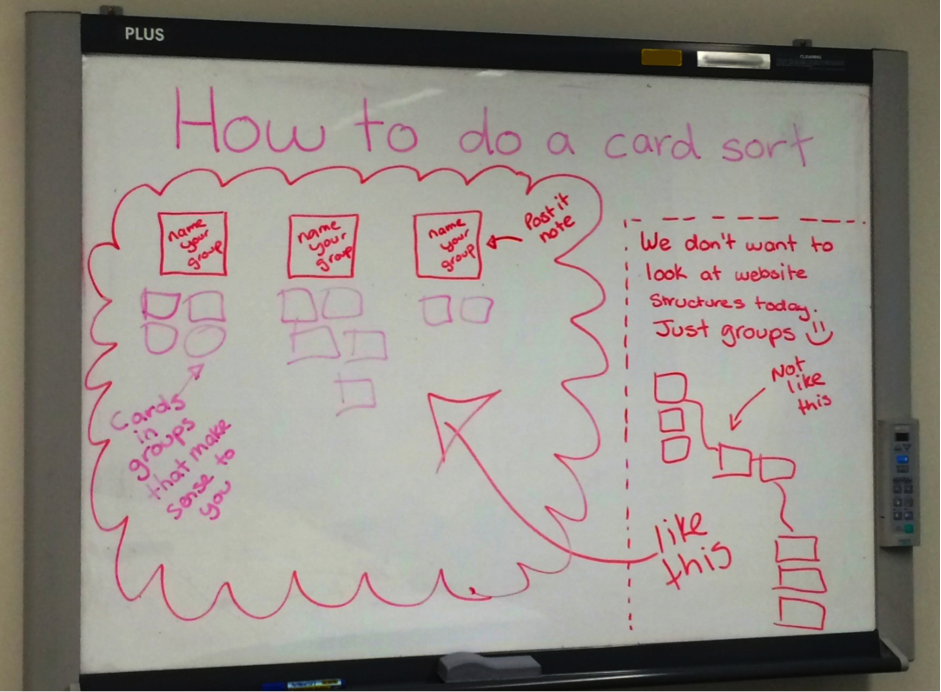 PLUS
How to do a card sort
name
your
group
name
your
group
name
your
group
Post it
note
We don't want to
look at website
structures today.
Just groups
Not
like
this
Cards
in
groups
that make
sense to
you
like
this